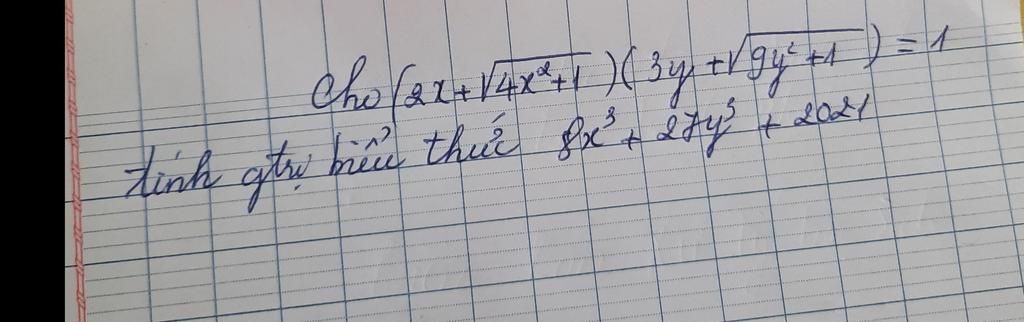 Cho (2x + √(4x² + 1))(3y + √(9y² + 1)) = 1
tính gtrị biểu thức 8x³ + 27y³ + 2021